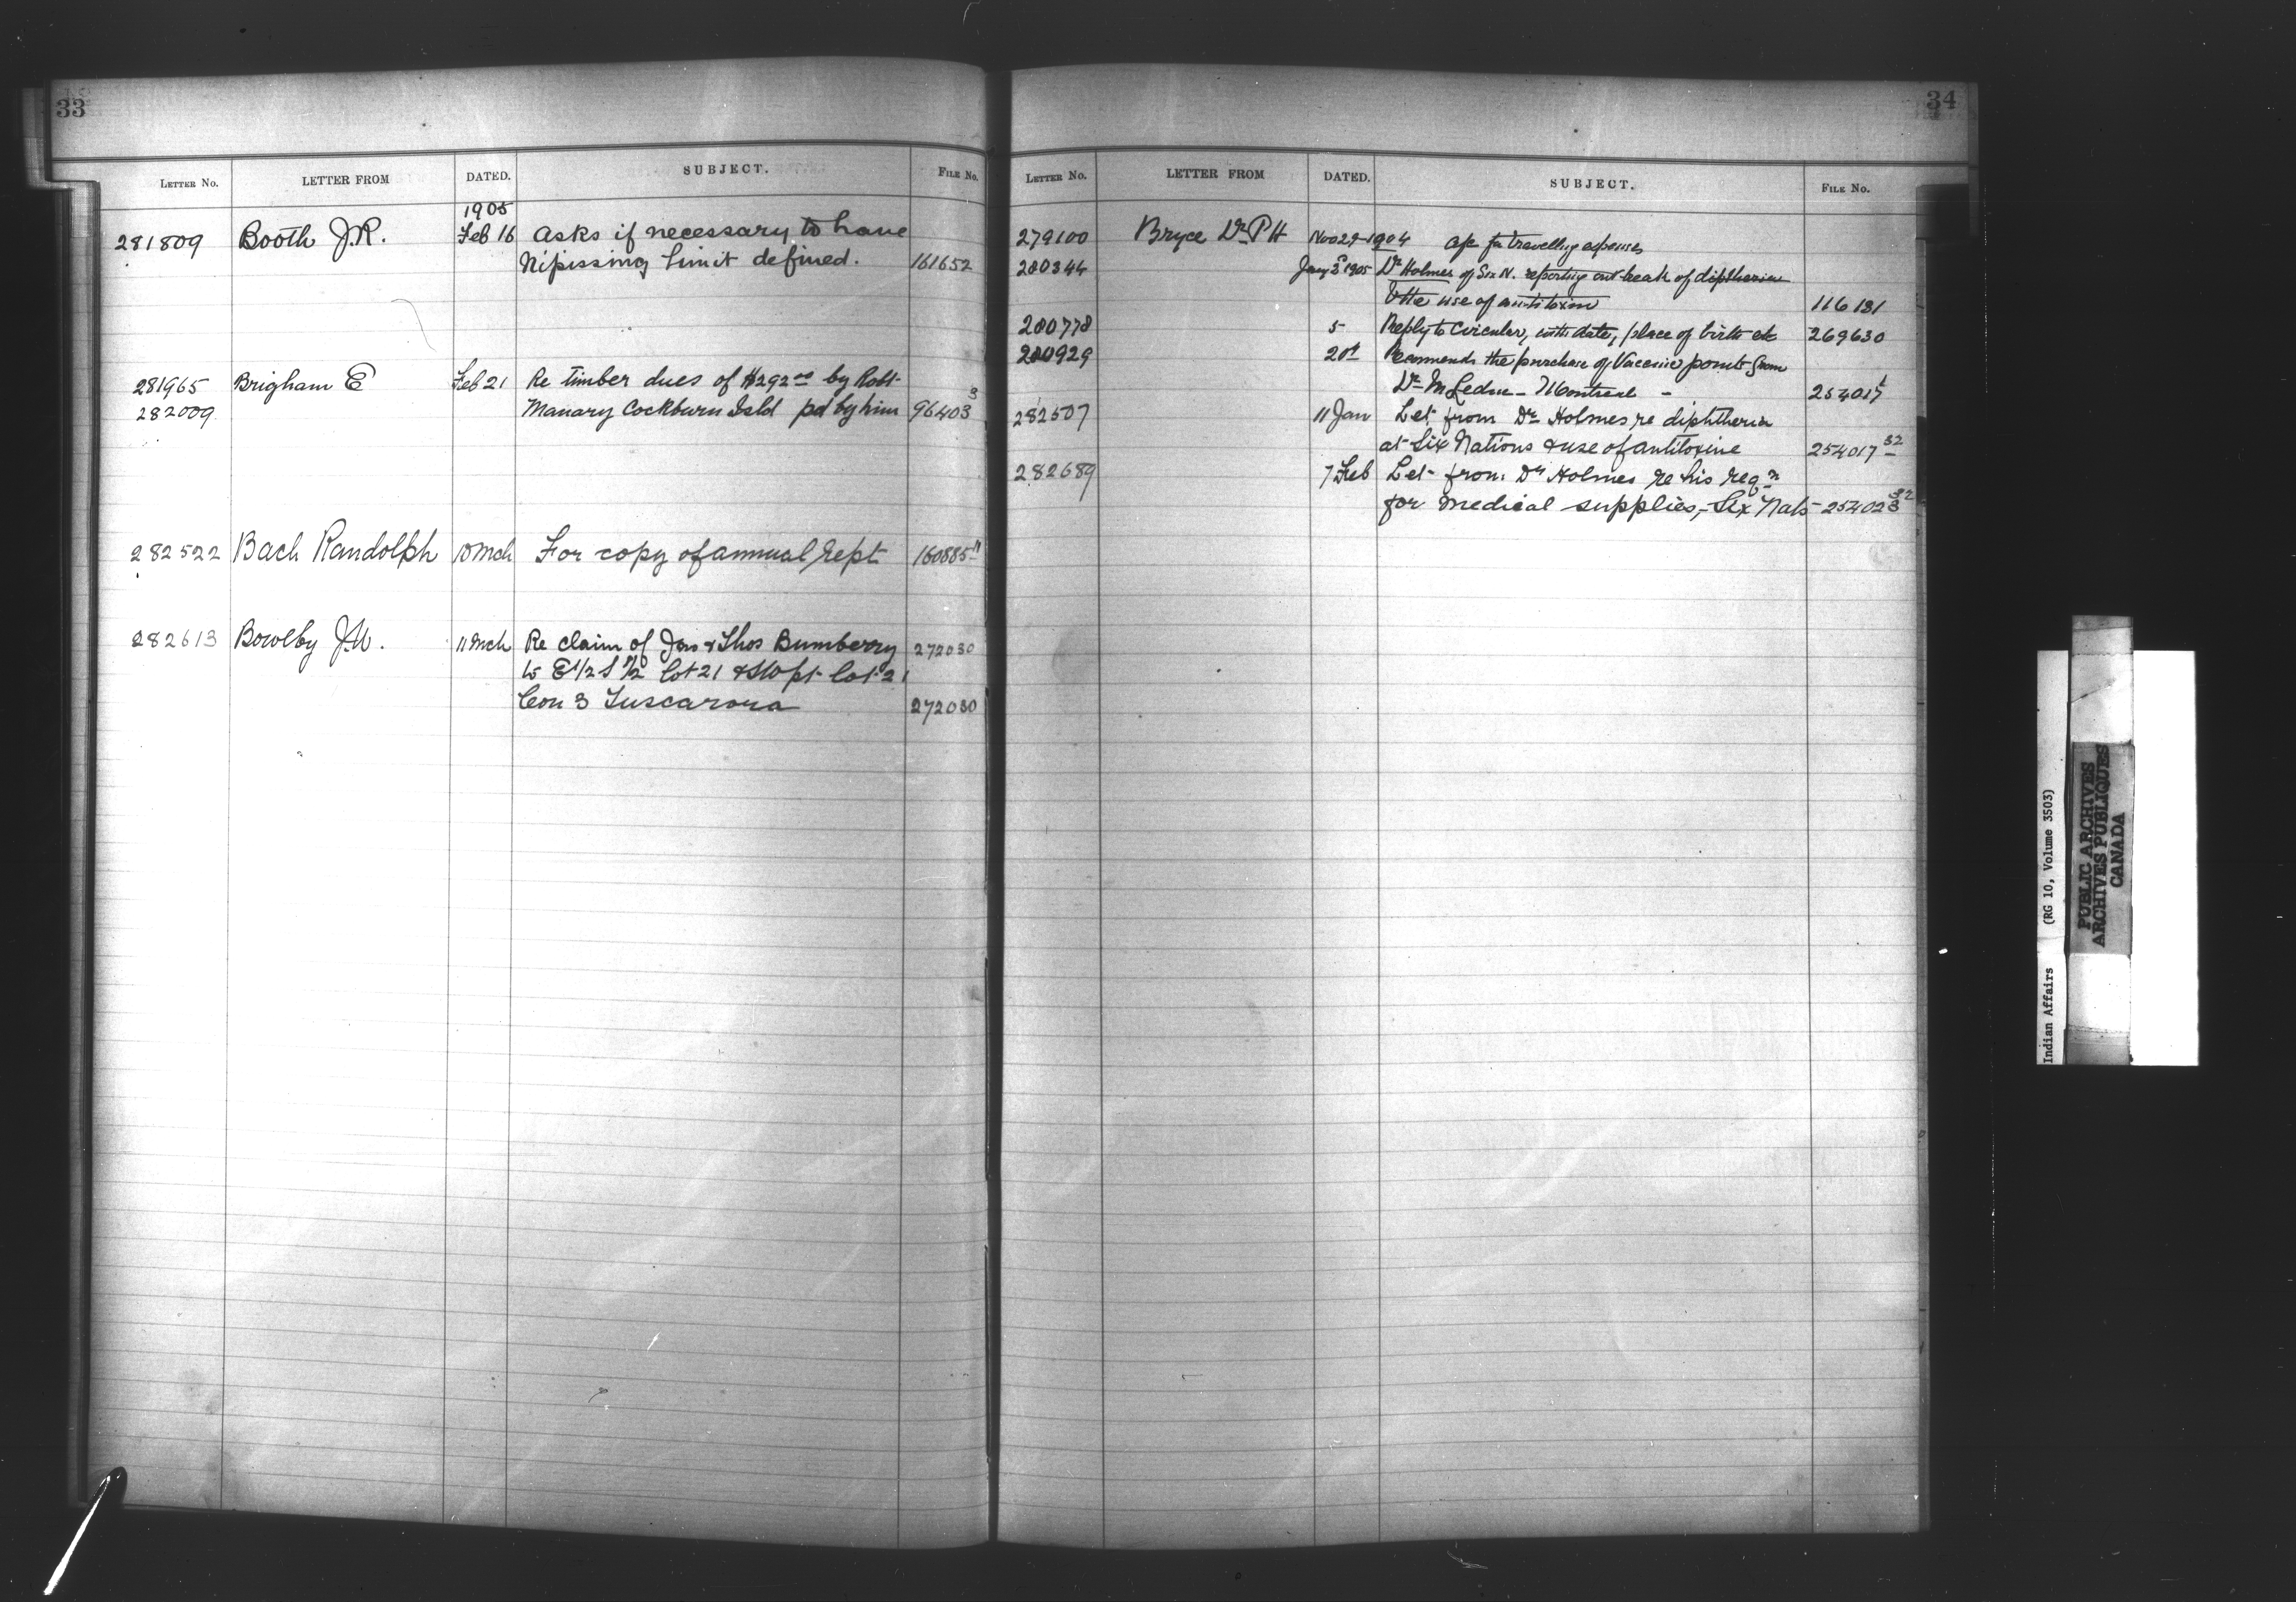 33
LETTER No. LETTER FROM DATED. SUBJECT. FILE No.
1905
281809 Booth J.R. Feb 16 Asks if necessary to have
Nipissing limit defined. 161652
281965 Brigham E Feb 21 Re timber dues of $292 00 by Robt
282009 Manary Cockburn Isld pd by him 96403 3
282522 Bach Randolph 10 Mch For copy of annual Rept 160885 11
282613 Bowlby J.W. 11 Mch Re claim of Jas & Thos Bumberry 272030
to E 1/2 S 1/2 lot 21 & SW pt lot 21
Con 3 Tuscarora 272030
34
LETTER No. LETTER FROM DATED. SUBJECT. FILE No.
279100 Bryce Dr. P H Nov 29-1904 a/c for travelling expenses
280344 Jany 3d 1905 Dr Holmes of Six N. reporting outbreak of diptheria
& the use of antitoxin 116131
280778 5 Reply to Circular, with date, place of birth etc 269630
280929 20t Recomends the purchase of Vaccine points from
Dr M Leduc - Montreal - 254017 1
282507 11 Jan Let from Dr Holmes re diphtheria
at Six Nations & use of antitoxine 254017 32
282689 7 Feb Let from Dr Holmes re his reqn
for medical supplies,- Six Nats 254023 32
Indian Affairs (RG 10, Volume 3503)
PUBLIC ARCHIVES
ARCHIVES PUBLIQUES
CANADA